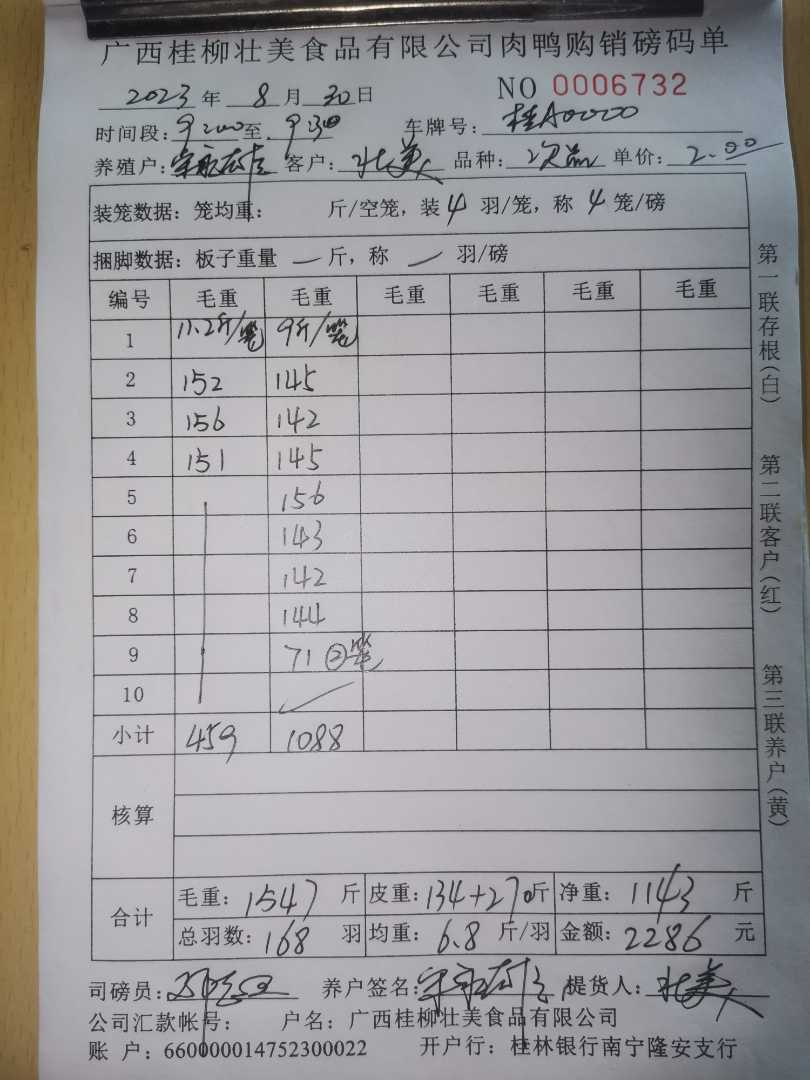 广西桂柳壮美食品有限公司肉鸭购销磅码单
2023年 8月 30日 NO 0006732
时间段: 9:00至 9:30 车牌号: 桂A00000
养殖户: 客户: 壮美 品种: 次品 单价: 2.00
装笼数据: 笼均重: 斤/空笼, 装 4 羽/笼, 称 4 笼/磅
捆脚数据: 板子重量 — 斤, 称 — 羽/磅
编号 毛重 毛重 毛重 毛重 毛重 毛重
1 11.2斤/笼 9斤/笼
2 152 145
3 156 142
4 151 145
5 156
6 143
7 142
8 144
9 71 ②笼
10
小计 459 1088
核算
合计 毛重: 1547 斤 皮重: 134+270斤 净重: 1143 斤
总羽数: 168 羽 均重: 6.8 斤/羽 金额: 2286 元
司磅员: 养户签名: 提货人: 壮美
公司汇款帐号: 户名: 广西桂柳壮美食品有限公司
账 户: 660000014752300022 开户行: 桂林银行南宁隆安支行
第一联存根(白) 第二联客户(红) 第三联养户(黄)